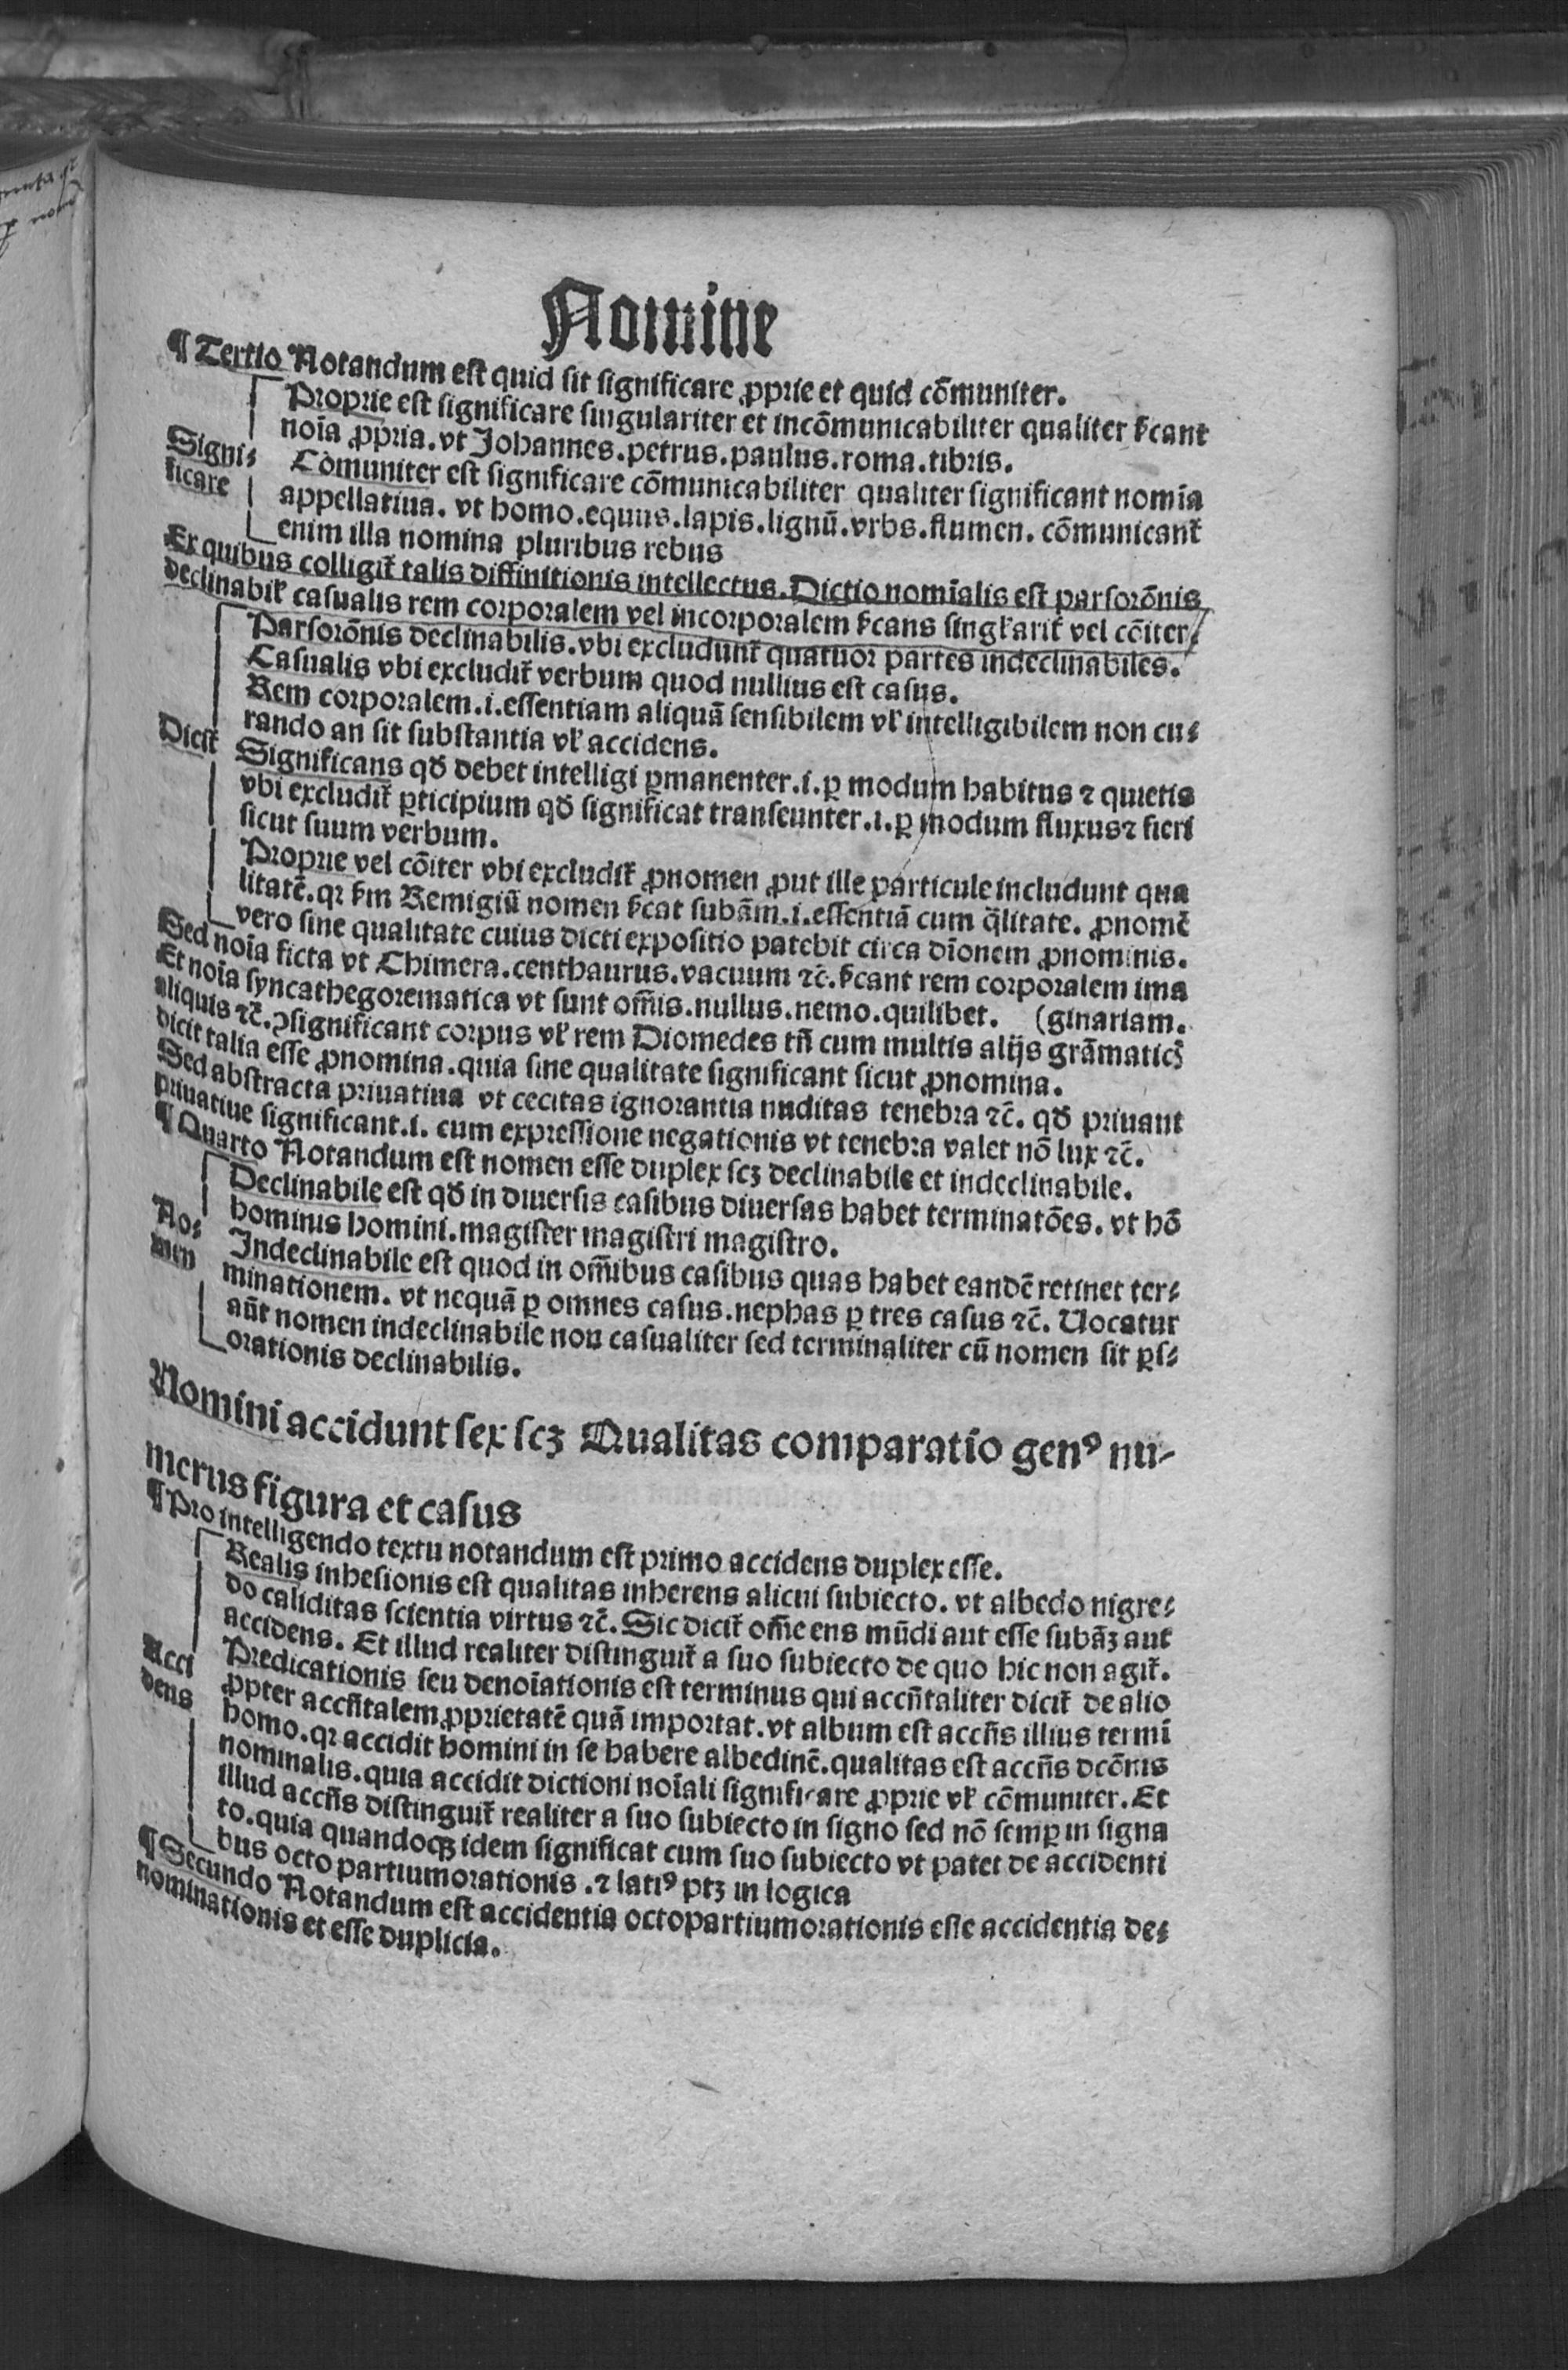 Nomine
¶ Tertio Notandum est quid sit significare ꝓprie et quid cōmuniter.
Proprie est significare singulariter et incōmunicabiliter qualiter ſcant
noīa ꝓpria. vt Johannes. petrus. paulus. roma. tibris.
Signi⸗
ficare
Cōmuniter est significare cōmunicabiliter qualiter significant nomīa
appellatiua. vt homo. equus. lapis. lignū. vrbs. flumen. cōmunicant̄
enim illa nomina pluribus rebus
Ex quibus colligit̄ talis diffinitionis intellectus. Dictio nomīalis est parsorōnis
declinabil̄ casualis rem corporalem vel incorporalem ſcans singl̄arit̄ vel cōiter.
Parsorōnis declinabilis. vbi excludunt̄ quatuor partes indeclinabiles.
Casualis vbi excludit̄ verbum quod nullius est casus.
Rem corporalem .i. essentiam aliquā sensibilem vl̄ intelligibilem non cu⸗
rando an sit substantia vl̄ accidens.
Dicit̄
Significans qď debet intelligi ꝑmanenter .i. ꝑ modum habitus ⁊ quietis
vbi excludit̄ ꝑticipium qď significat transeunter .i. ꝑ modum fluxus ⁊ fieri
sicut suum verbum.
Proprie vel cōiter vbi excludit̄ ꝓnomen ꝓut ille particule includunt qua
litatē. qꝛ ſm Remigiū nomen ſcat subām .i. essentiā cum q̄litate. ꝓnomē
vero sine qualitate cuius dicti expositio patebit circa dīonem ꝓnominis.
Sed noīa ficta vt Chimera. centhaurus. vacuum ⁊c̄. ſcant rem corporalem ima
Et noīa syncathegorematica vt sunt om̄is. nullus. nemo. quilibet. (ginariam.
aliquis ⁊c̄. ꝯsignificant corpus vl̄ rem Diomedes tn̄ cum multis alijs grāmaticꝭ
dicit talia esse ꝓnomina. quia sine qualitate significant sicut ꝓnomina.
Sed abstracta priuatiua vt cecitas ignorantia nuditas tenebra ⁊c̄. qď priuant
priuatiue significant .i. cum expressione negationis vt tenebra valet nō lux ⁊c̄.
¶ Quarto Notandum est nomen esse duplex scꝫ declinabile et indeclinabile.
Declinabile est qď in diuersis casibus diuersas habet terminatōes. vt hō
hominis homini. magister magistri magistro.
No⸗
men
Indeclinabile est quod in om̄ibus casibus quas habet eandē retinet ter⸗
minationem. vt nequā ꝑ omnes casus. nephas ꝑ tres casus ⁊c̄. Uocatur
aūt nomen indeclinabile non casualiter sed terminaliter cū nomen sit ꝑs⸗
orationis declinabilis.
Nomini accidunt sex scꝫ Qualitas comparatio genꝰ nu-
merus figura et casus
¶ Pro intelligendo textu notandum est primo accidens duplex esse.
Realis inhesionis est qualitas inherens alicui subiecto. vt albedo nigre⸗
do caliditas scientia virtus ⁊c̄. Sic dicit̄ om̄e ens mūdi aut esse subāꝫ aut
accidens. Et illud realiter distinguit̄ a suo subiecto de quo hic non agit̄.
Acci
dens
Predicationis seu denoīationis est terminus qui accn̄taliter dicit̄ de alio
ꝓpter accn̄talem ꝓprietatē quā importat. vt album est accn̄s illius termī
homo. qꝛ accidit homini in se habere albedinē. qualitas est accn̄s dcōnis
nominalis. quia accidit dictioni noīali significare ꝓprie vl̄ cōmuniter. Et
illud accn̄s distinguit̄ realiter a suo subiecto in signo sed nō semꝑ in signa
to. quia quandoqꝫ idem significat cum suo subiecto vt patet de accidenti
bus octo partiumorationis . ⁊ latiꝰ ptꝫ in logica
¶ Secundo Notandum est accidentia octopartiumorationis esse accidentia de⸗
nominationis et esse duplicia.